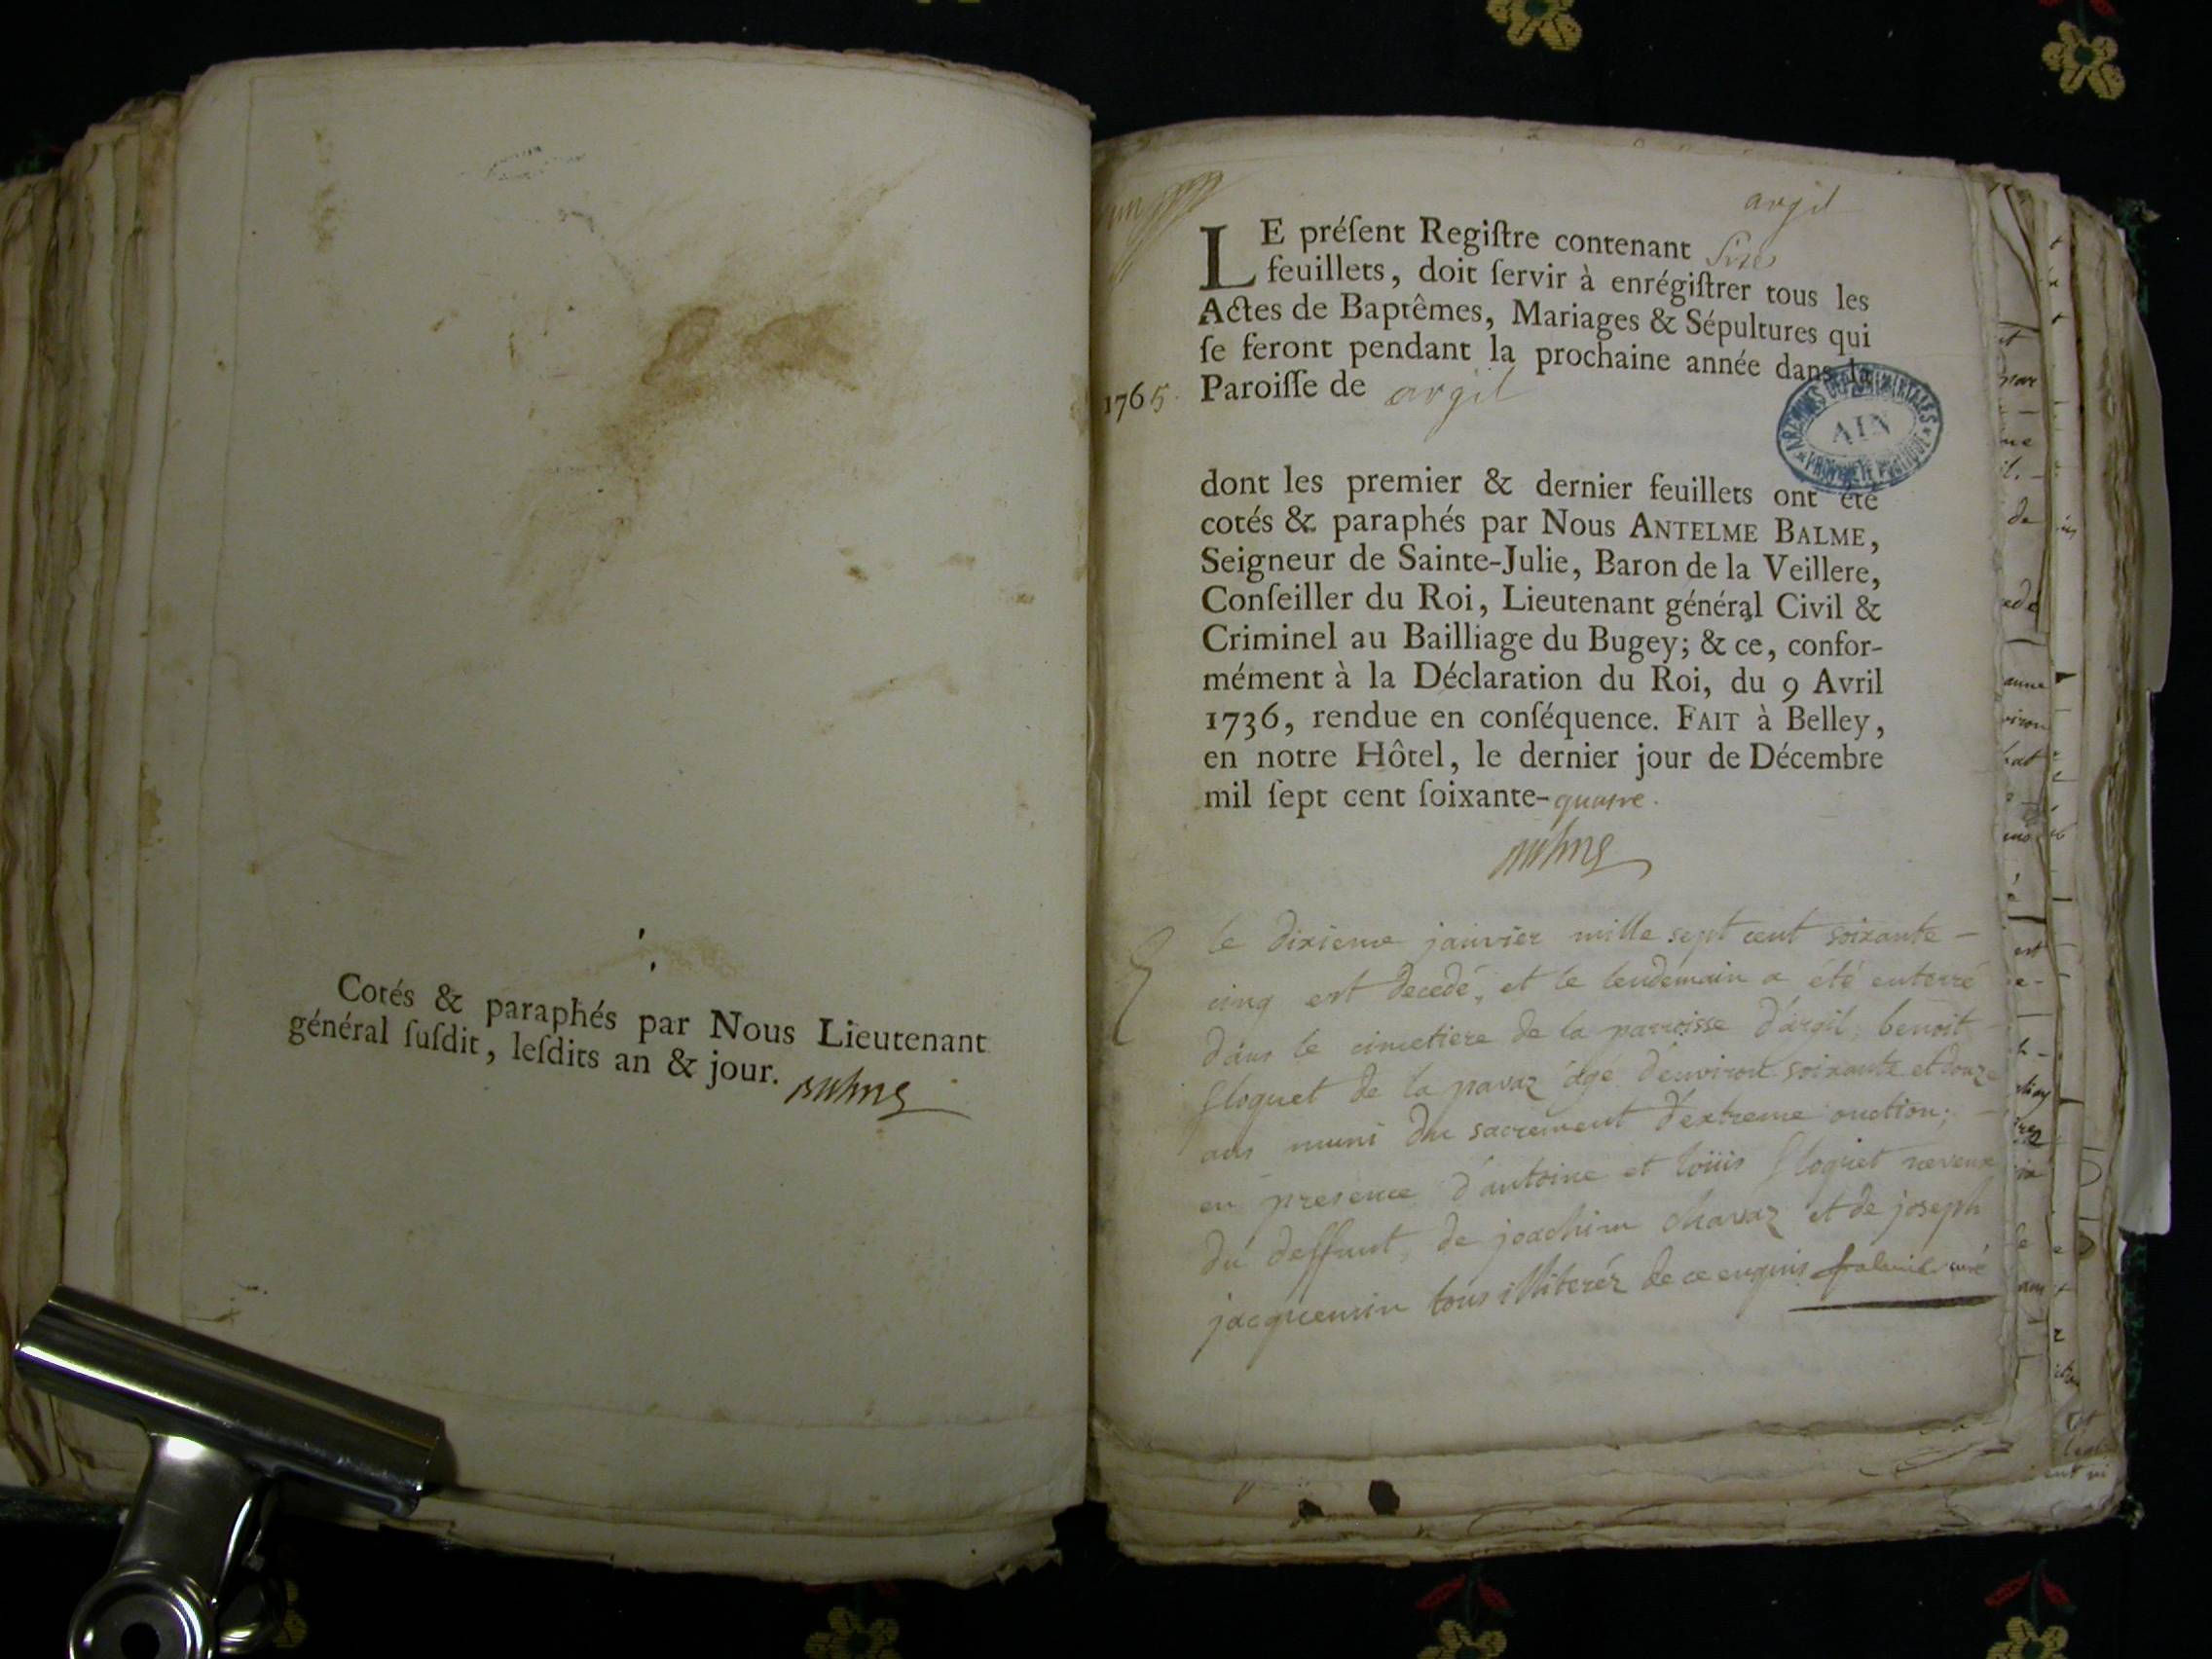 Cotés & paraphés par Nous Lieutenant
général ſuſdit, leſdits an & jour.
argil
LE préſent Regiſtre contenant
feuillets, doit ſervir à enrégiſtrer tous les
Actes de Baptêmes, Mariages & Sépultures qui
ſe feront pendant la prochaine année dans la
1765. Paroiſſe de argil
ARCHIVES DÉPARTEMENTALES
AIN
PROPRIÉTÉ PUBLIQUE
dont les premier & dernier feuillets ont été
cotés & paraphés par Nous ANTELME BALME,
Seigneur de Sainte-Julie, Baron de la Veillere,
Conſeiller du Roi, Lieutenant général Civil &
Criminel au Bailliage du Bugey; & ce, confor-
mément à la Déclaration du Roi, du 9 Avril
1736, rendue en conſéquence. FAIT à Belley,
en notre Hôtel, le dernier jour de Décembre
mil ſept cent ſoixante-quatre.
le dixieme janvier mille sept cent soixante -
cinq est decedé, et le lendemain a été enterré
dans le cimetiere de la parroisse d'argil, benoit
floquet de la pavaz âgé d'environ soixante et douze
ans muni du sacrement d'extreme onction,
en presence d'antoine et loüis floquet neveux
du deffunt, de joachim chavaz et de joseph
jacquemin tous illiteréz de ce enquis curé